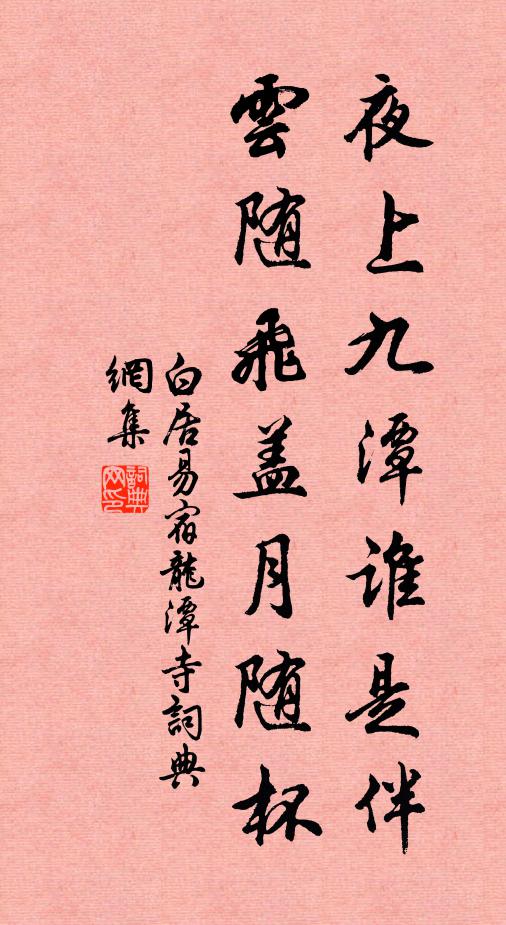 夜上九潭谁是伴
雲随飛盖月随杯
白居易宿龍潭寺詞典
網集
詞典
网印